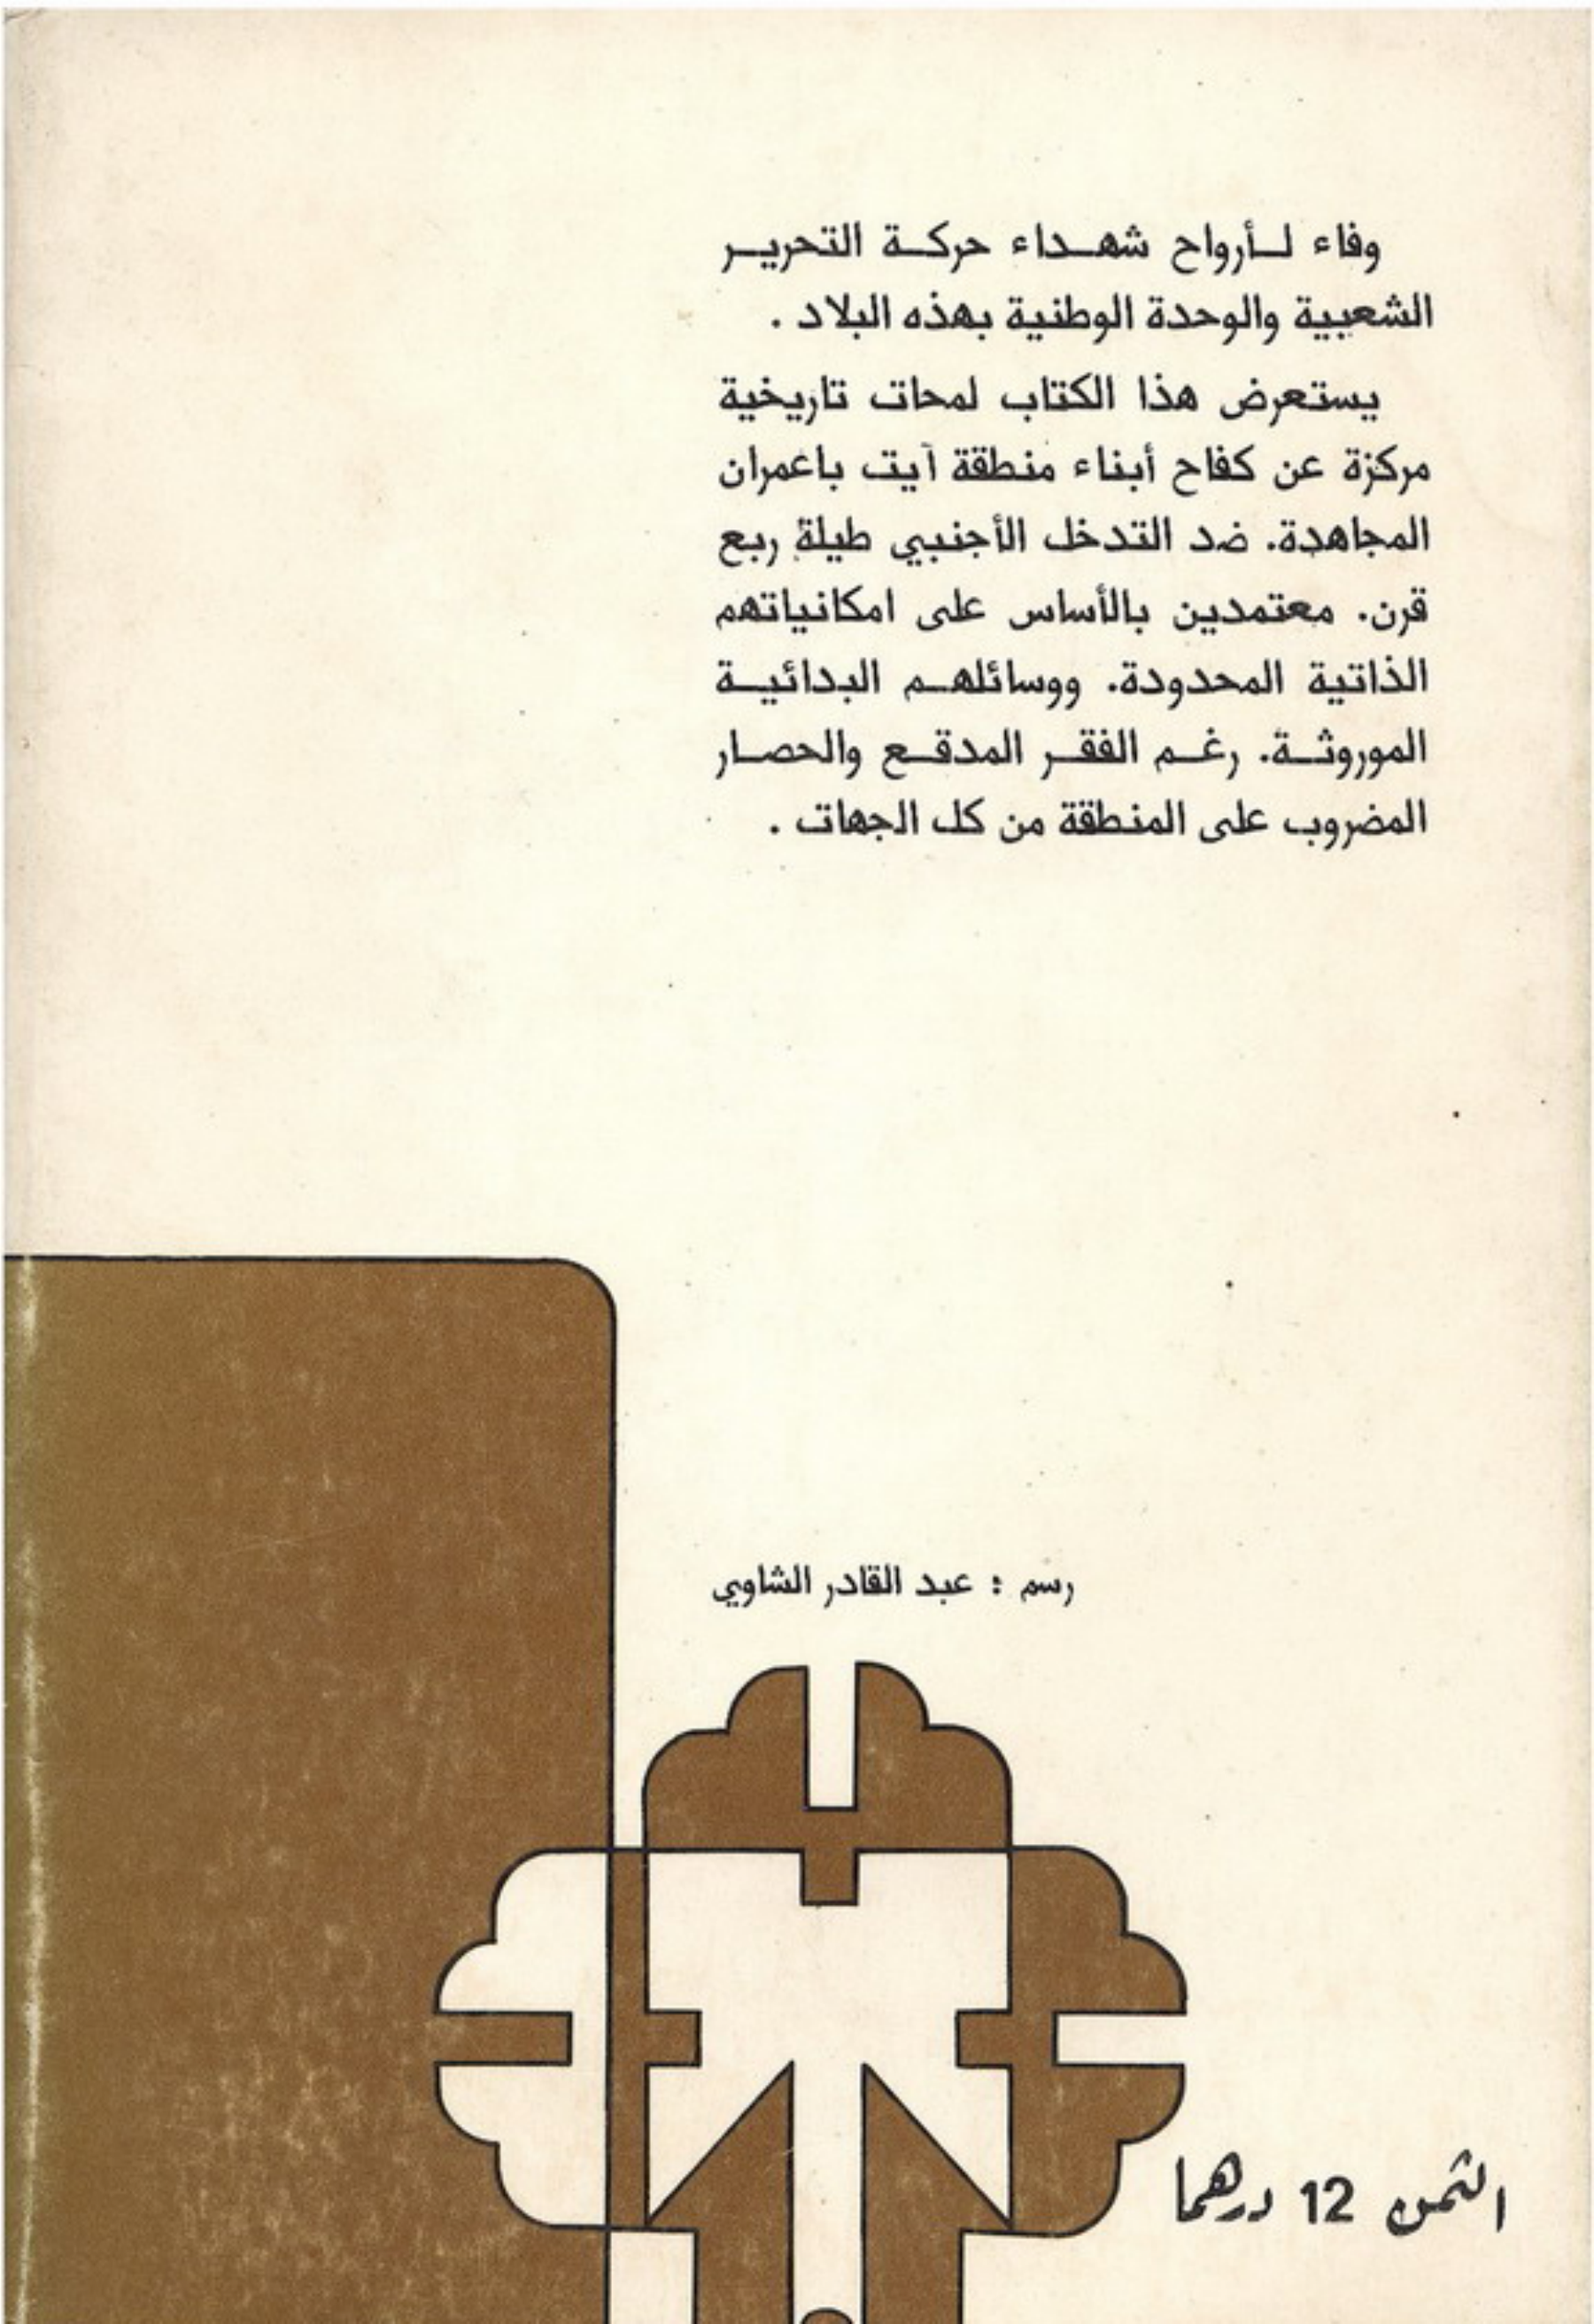 وفاء لـأرواح شهـداء حركـة التحريـر
الشعبية والوحدة الوطنية بهذه البلاد .
يستعرض هذا الكتاب لمحات تاريخية
مركزة عن كفاح أبناء منطقة آيت باعمران
المجاهدة. ضد التدخل الأجنبي طيلة ربع
قرن. معتمدين بالأساس على امكانياتهم
الذاتية المحدودة. ووسائلهـم البدائيـة
الموروثـة. رغـم الفقـر المدقـع والحصـار
المضروب على المنطقة من كل الجهات .
رسم : عبد القادر الشاوي
الثمن 12 درهما